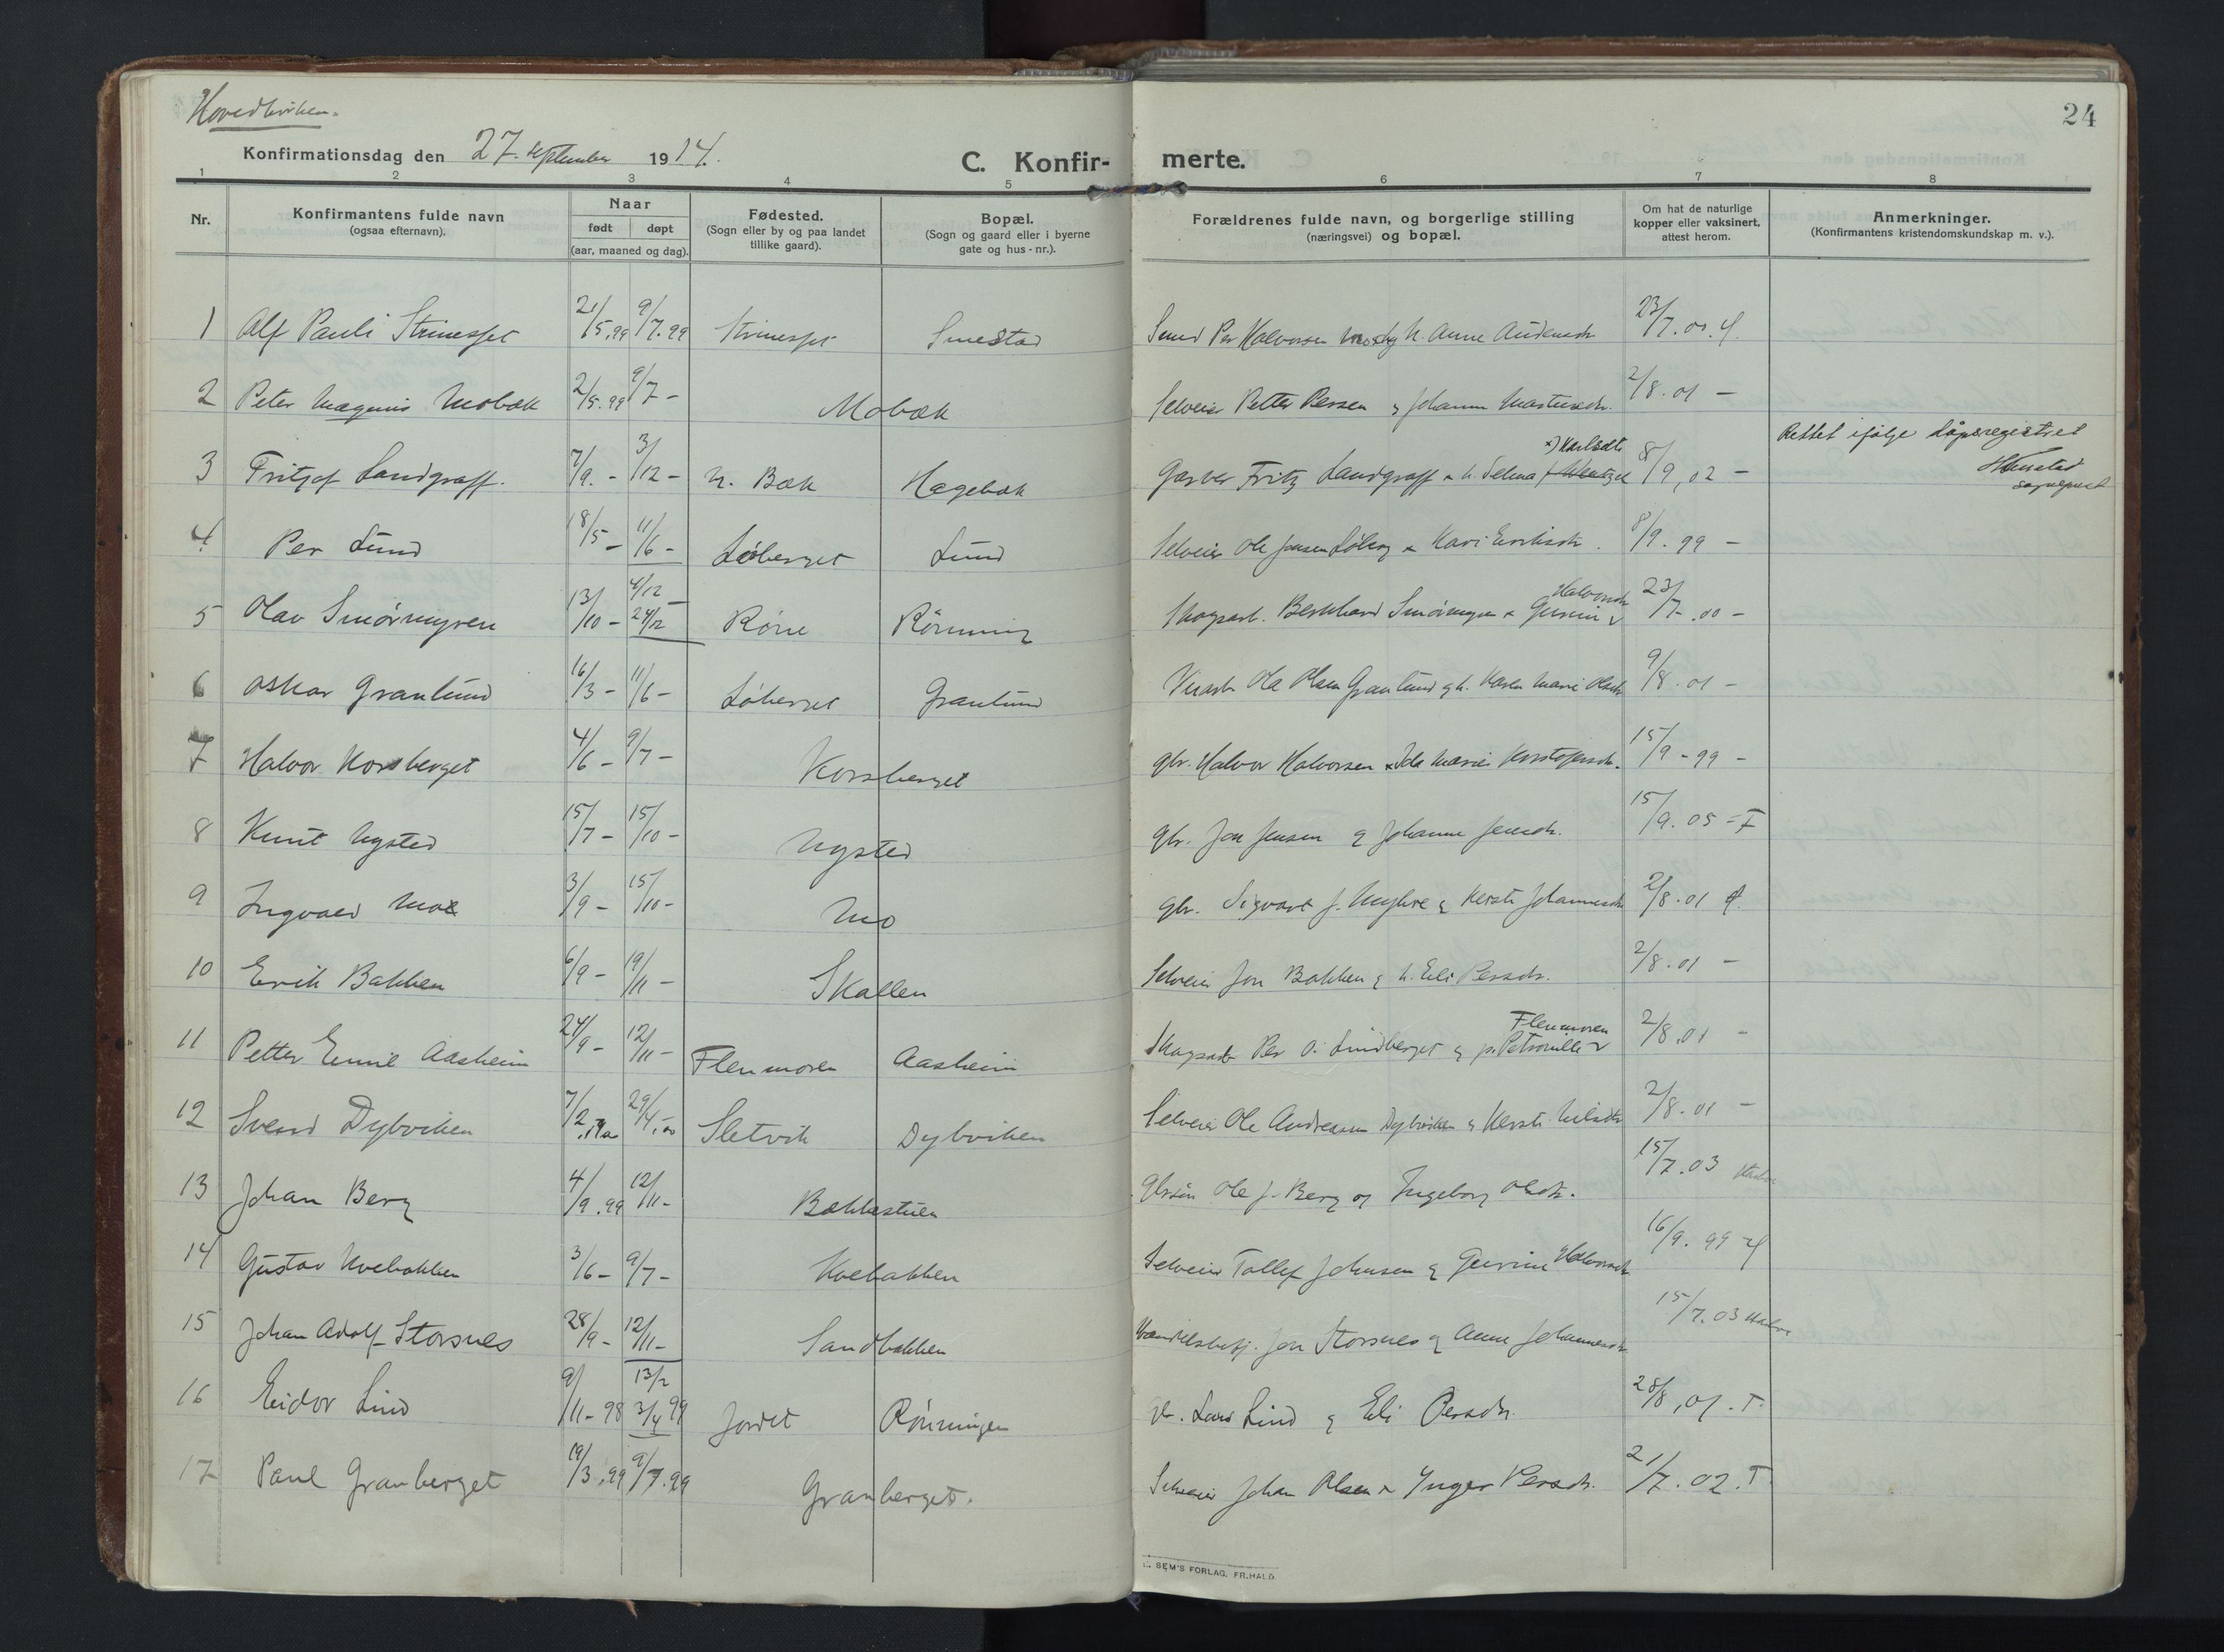 Hovedkirken.
24
Konfirmationsdag den 27. september 1914.
C. Konfir- merte.
1 2 3 4 5 6 7 8
Nr.
Konfirmantens fulde navn
(ogsaa efternavn).
Naar
født døpt
(aar, maaned og dag).
Fødested.
(Sogn eller by og paa landet
tillike gaard).
Bopæl.
(Sogn og gaard eller i byerne
gate og hus - nr.).
Forældrenes fulde navn, og borgerlige stilling
(næringsvei) og bopæl.
Om hat de naturlige
kopper eller vaksinert,
attest herom.
Anmerkninger.
(Konfirmantens kristendomskundskap m. v.).
1 Alf Pauli 21/5.99 9/7.99 Smestad Smed Per Halvorsen h. Anne 23/7.00.
2 Peter Magnus Mobæk 2/5.99 9/7 - Mobæk Selveier Petter Persen Johanne 2/8.01 -
x) Karlsdtr
Rettet ifølge dåpsregistret
3 Fritjof Landgraff. 7/9. - 3/12 - N. Bæk Hagebæk Fritz Landgraff h. Selma 8/9, 02 -
sogneprest
4 Per Lund 18/5 - 11/6 - Løberget Lund Selveier Ole Jensen Løberg Kari 8/9. 99 -
4/12 -
Halvorsdtr
5 Olav Smørmyren 13/10 - 24/12 Røne Rønning Skogsarb. Bernhard Smørmyren Gurine 23/7-.00 -
6 Oskar Granlund 16/3 - 11/6 - Løberget Granlund Ole Olsen Granlund h. Karen Marie Olsdtr 9/8.01 -
7 Halvor Korsberget 4/6 - 9/7 - Korsberget gbr. Halvor Halvorsen Ida Marie 15/9 - 99 -
8 Knut Nysted 15/7 - 15/10 - Nysted gbr. Jon Jensen Johanne Jensdtr. 15/9.05 -
9 Ingvald Moe 3/9 - 15/10 - Mo gbr. Sigvart J. Myhre Kersti Johannesdtr 2/8.01
10 Erik Bakken 6/9 - 19/11 - Skallen Selveier Jon Bakken h. Eli Persdtr. 2/8.01 -
Flenmoen
11 Petter Emil Aasheim 24/9 - 12/11 - Flenmoen Aasheim Skogsarb Per O. Lindberget 2/8.01 -
12 Svend Dybviken 7/2. 29/4.00 Sletvik Dybviken Selveier Ole Andreassen Dybviken Kersti Nilsdtr 2/8.01 -
13 Johan Berg 4/9.99 12/11 - Bækkestuen Ole J. Berg og Ingeborg Olsdtr. 15/7.03
14 Gustav Kvebakken 3/6 - 9/7 - Kvebakken Selveier Tollef Johnsen Gurine Halvorsdtr 16/9. 99
15 Johan Adolf Storsnes 28/9 - 12/11 - Sandbakken Jon Storsnes Anne Johannesdtr 15/7.03
13/2
16 Eidor Lind 9/11 - 98 3/4 99 Jordet Rønningen Lars Lind Eli Persdtr. 28/8,01. T.
17 Paul Granberget 19/3.99 9/7.99 Granberget. Selveier Johan Olsen Inger Persdtr. 21/7.02. T.
SEM'S FORLAG, FR.HALD.